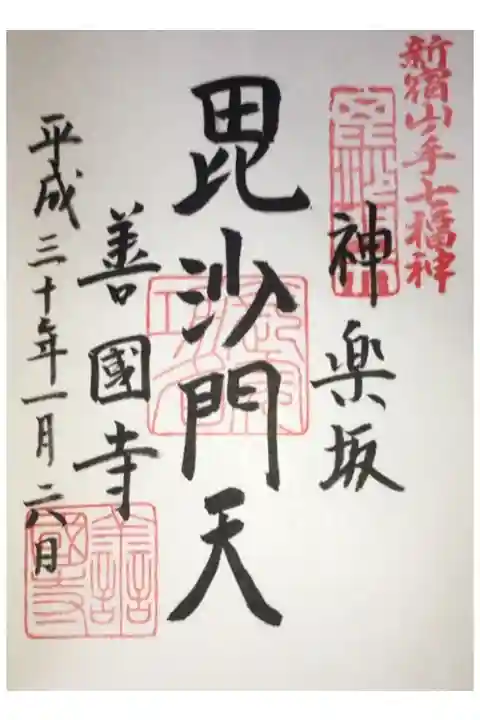 新宿山ノ手七福神
神楽坂
毘沙門天
善國寺
平成三十年一月二六日